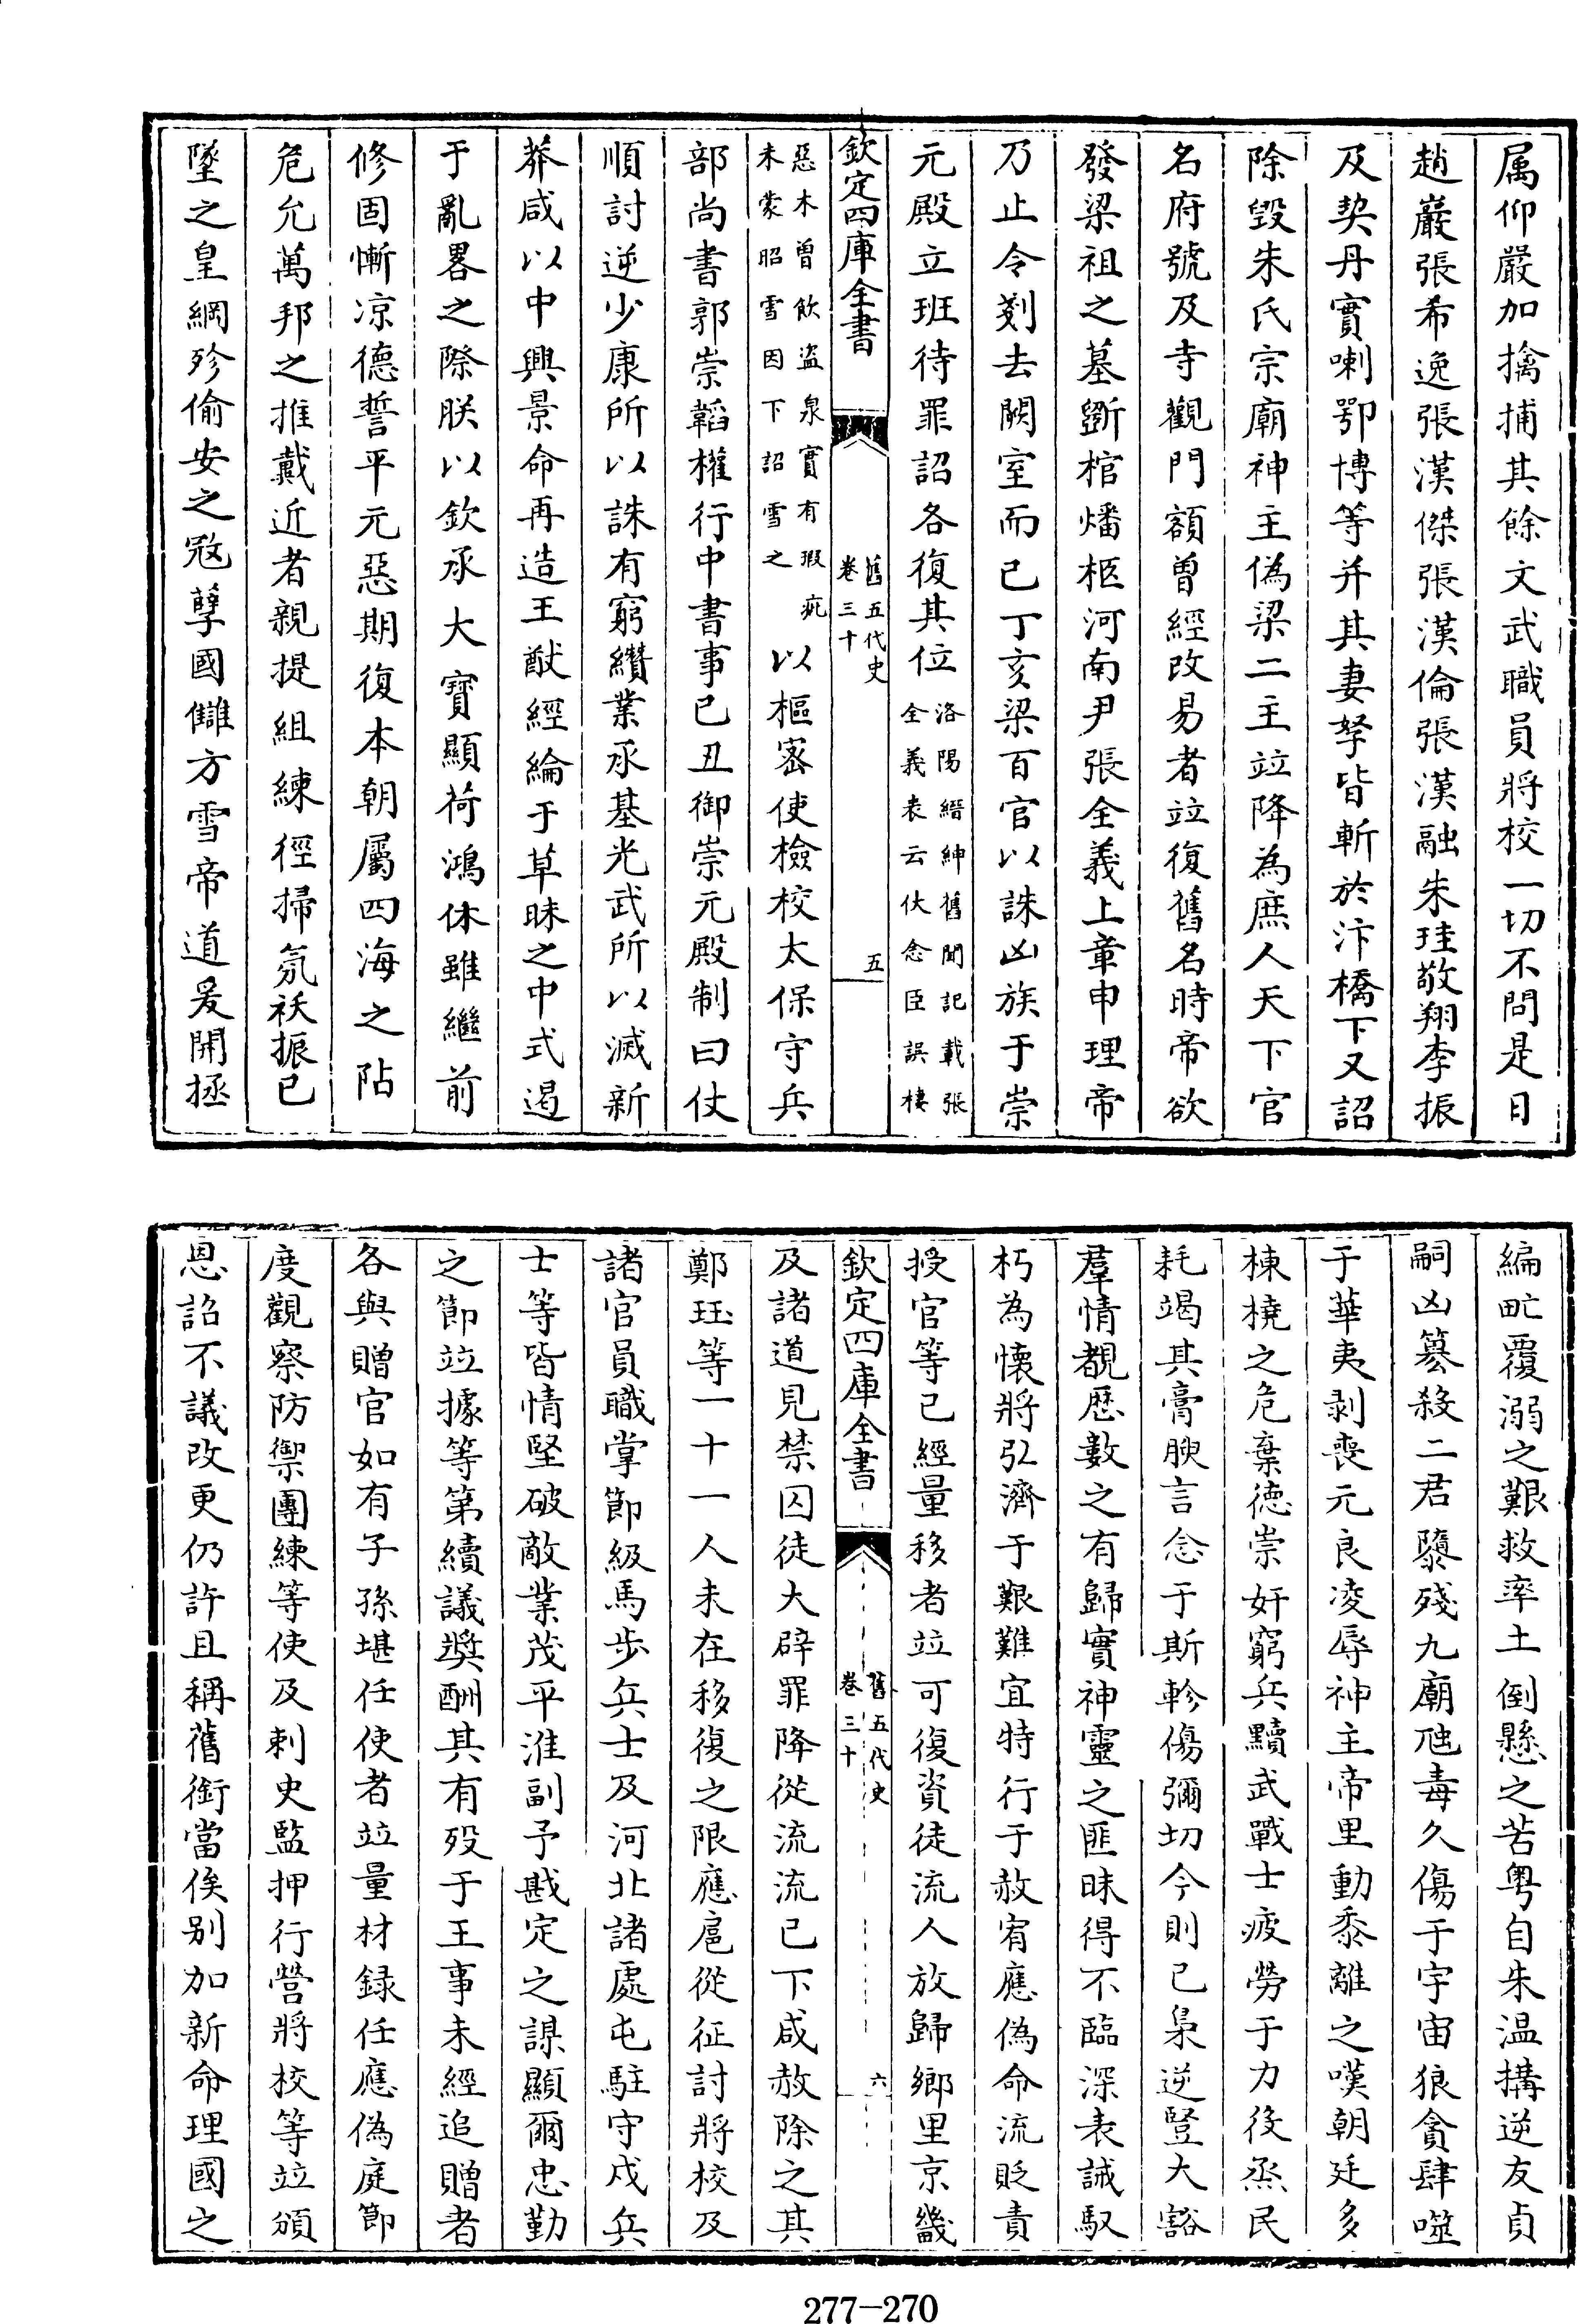 属仰嚴加擒捕其餘文武職員將校一切不問是日
趙巖張希逸張漢傑張漢倫張漢融朱珪敬翔李振
及契丹實喇鄂博等并其妻孥皆斬於汴橋下又詔
除毀朱氏宗廟神主偽梁二主竝降為庶人天下官
名府號及寺觀門額曾經改易者竝復舊名時帝欲
發梁祖之墓斵棺燔柩河南尹張全義上章申理帝
乃止令剗去闕室而已丁亥梁百官以誅凶族于崇
元殿立班待罪詔各復其位洛陽縉紳舊聞記載張全義表云伏念臣誤棲
欽定四庫全書 舊五代史卷三十 五
惡木曾飲盜泉實有瑕疵未蒙昭雪因下詔雪之以樞密使檢校太保守兵
部尚書郭崇韜權行中書事已丑御崇元殿制曰仗
順討逆少康所以誅有窮纘業承基光武所以滅新
莽咸以中興景命再造王猷經綸于草昧之中式遏
于亂畧之際朕以欽承大寶顯荷鴻休雖繼前
修固慚凉德誓平元惡期復本朝屬四海之阽
危允萬邦之推戴近者親提組練徑掃氛祅振已
墜之皇綱殄偷安之寇孽國讎方雪帝道爰開拯
編甿覆溺之艱救率土倒懸之苦粤自朱温搆逆友貞
嗣凶簒殺二君隳殘九廟虺毒久傷于宇宙狼貪肆噬
于華夷剥喪元良凌辱神主帝里動黍離之嘆朝廷多
棟橈之危棄德崇奸窮兵黷武戰士疲勞于力役烝民
耗竭其膏腴言念于斯軫傷彌切今則已梟逆豎大豁
羣情覩歴數之有歸實神靈之匪昧得不臨深表誠馭
朽為懷將弘濟于艱難宜特行于赦宥應偽命流貶責
授官等已經量移者竝可復資徒流人放歸鄉里京畿
欽定四庫全書 舊五代史卷三十 六
及諸道見禁囚徒大辟罪降從流流已下咸赦除之其
鄭珏等一十一人未在移復之限應扈從征討將校及
諸官員職掌節級馬步兵士及河北諸處屯駐守戍兵
士等皆情堅破敵業茂平淮副予戡定之謀顯爾忠勤
之節竝據等第續議奬酬其有殁于王事未經追贈者
各與贈官如有子孫堪任使者竝量材録任應偽庭節
度觀察防禦團練等使及刺史監押行營將校等竝頒
恩詔不議改更仍許且稱舊銜當俟别加新命理國之
277—270